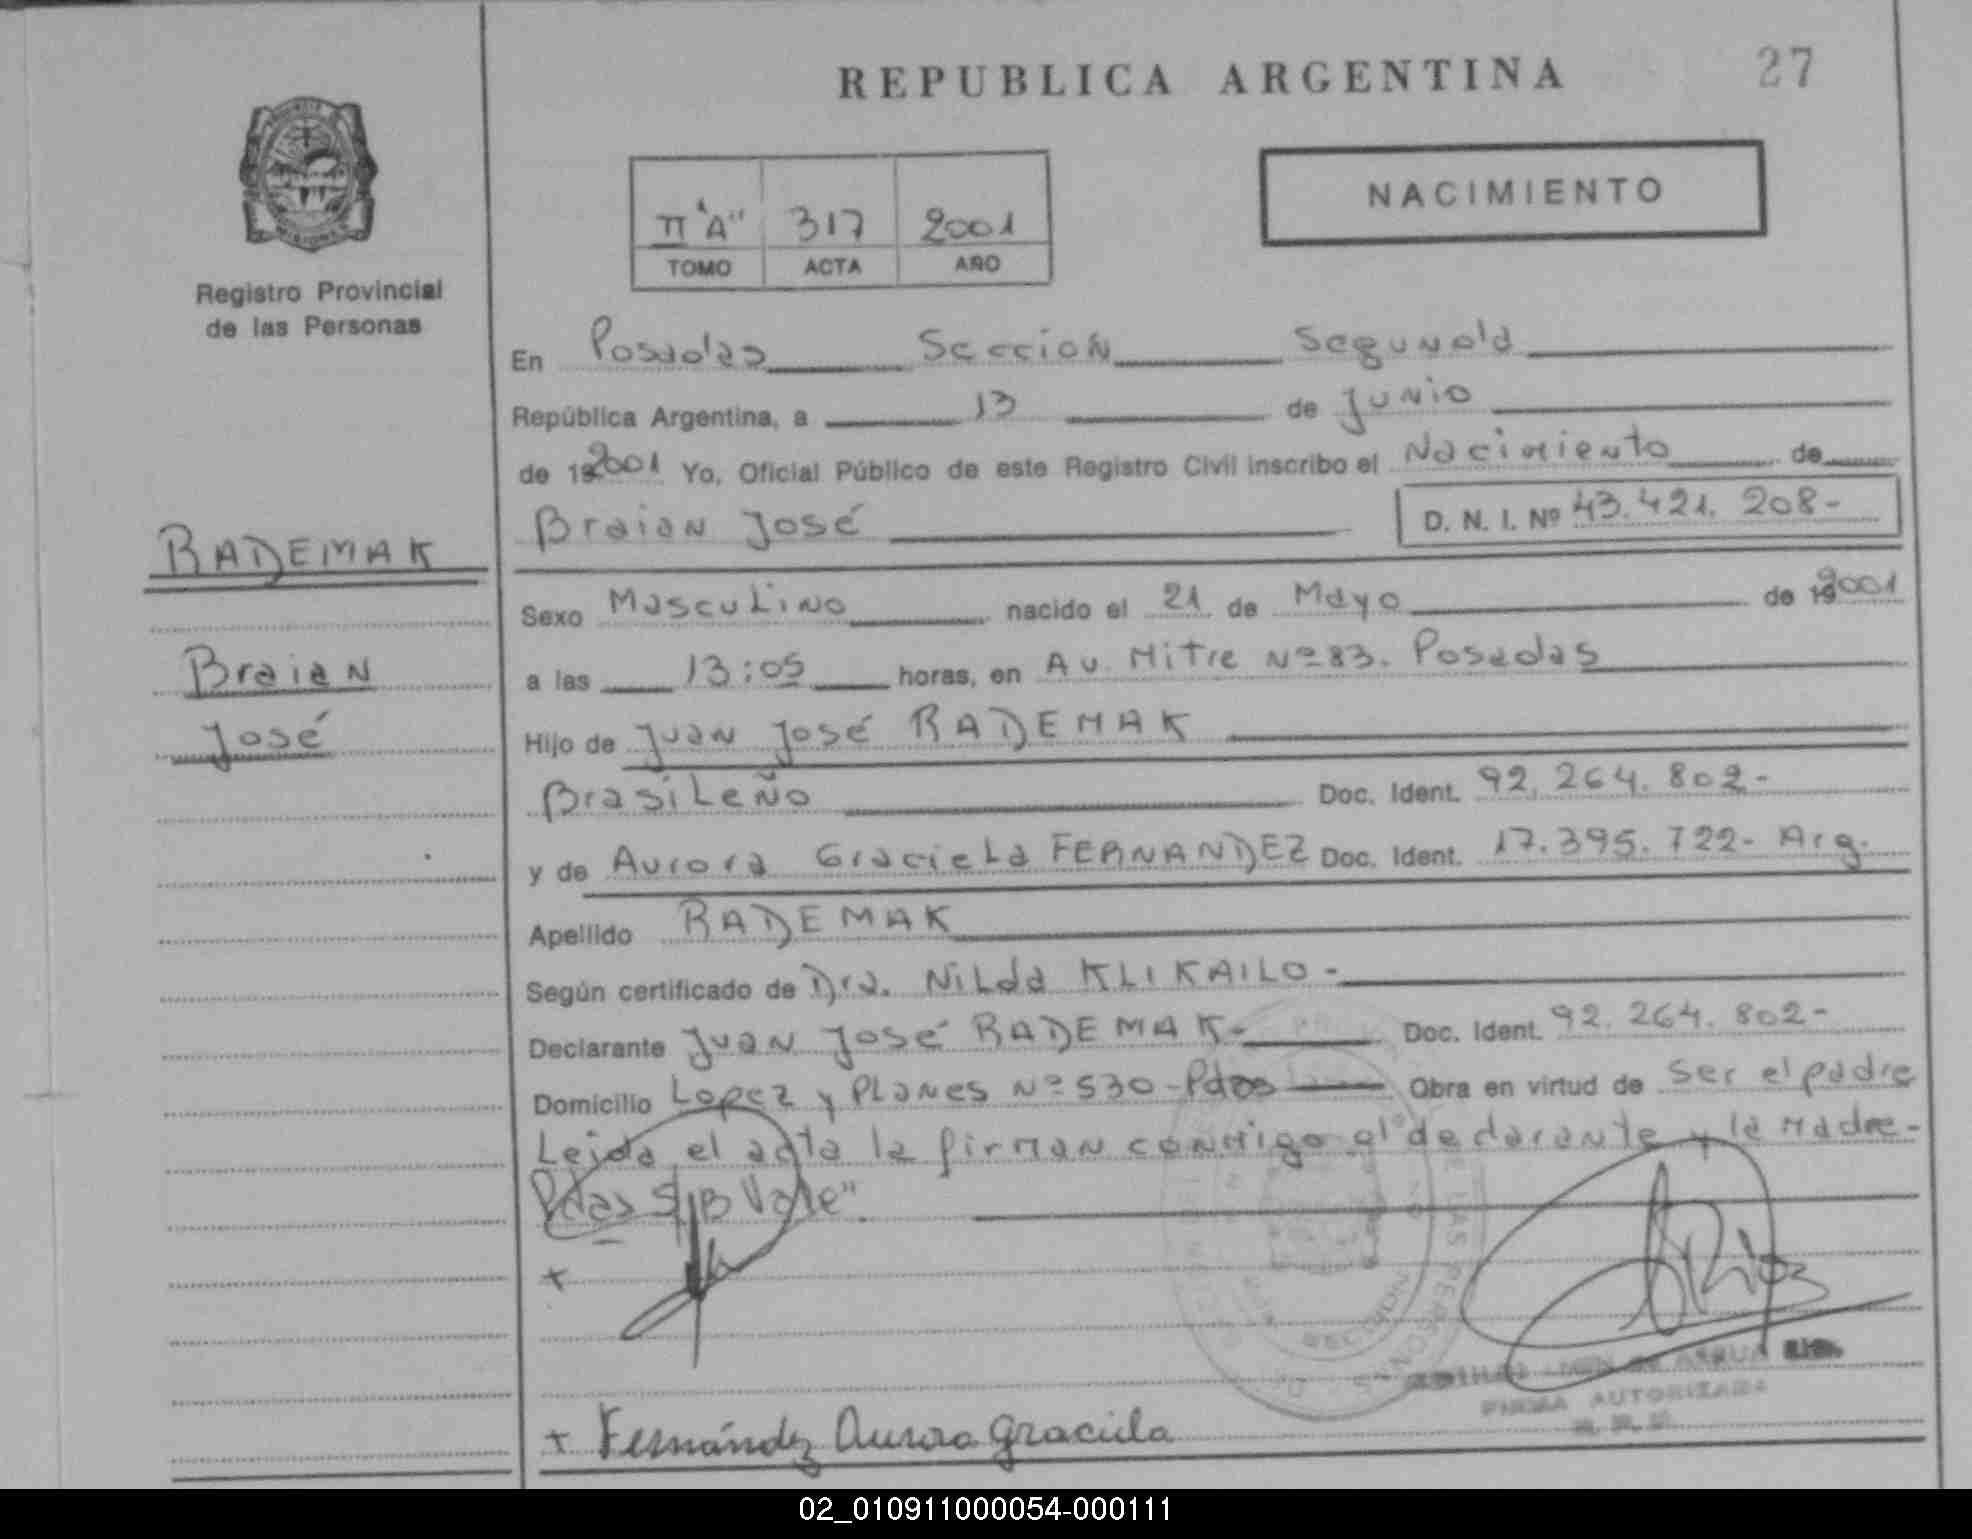 REPUBLICA ARGENTINA
27
II "A" 317 2001
TOMO ACTA AÑO
NACIMIENTO
Registro Provincial
de las Personas
En Posadas Sección Segunda
República Argentina, a 13 de Junio
de 192001 Yo, Oficial Público de este Registro Civil inscribo el Nacimiento de
Braian José D. N. I. Nº 43.421.208-
RADEMAK
Braian
José
Sexo Masculino nacido el 21 de Mayo de 192001
a las 13:05 horas, en Av. Mitre Nº 83. Posadas
Hijo de Juan José RADEMAK
Brasileño Doc. Ident. 92.264.802-
y de Aurora Graciela FERNANDEZ Doc. Ident. 17.395.722- Arg.
Apellido RADEMAK
Según certificado de Dra. Nilda KLIKAILO-
Declarante Juan José RADEMAK- Doc. Ident. 92.264.802-
Domicilio Lopez y Planes Nº 530-Pdas Obra en virtud de ser el padre
Leida el acta la firman conmigo el declarante y la Madre-
Pdas S/B Vale"
+
+ Fernández Aurora Graciela
FIRMA AUTORIZADA
02_010911000054-000111